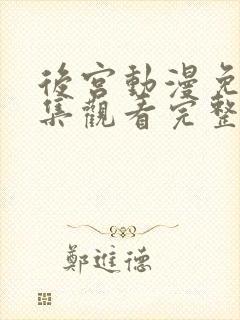 後宮動漫免
集觀看完整
鄭進德